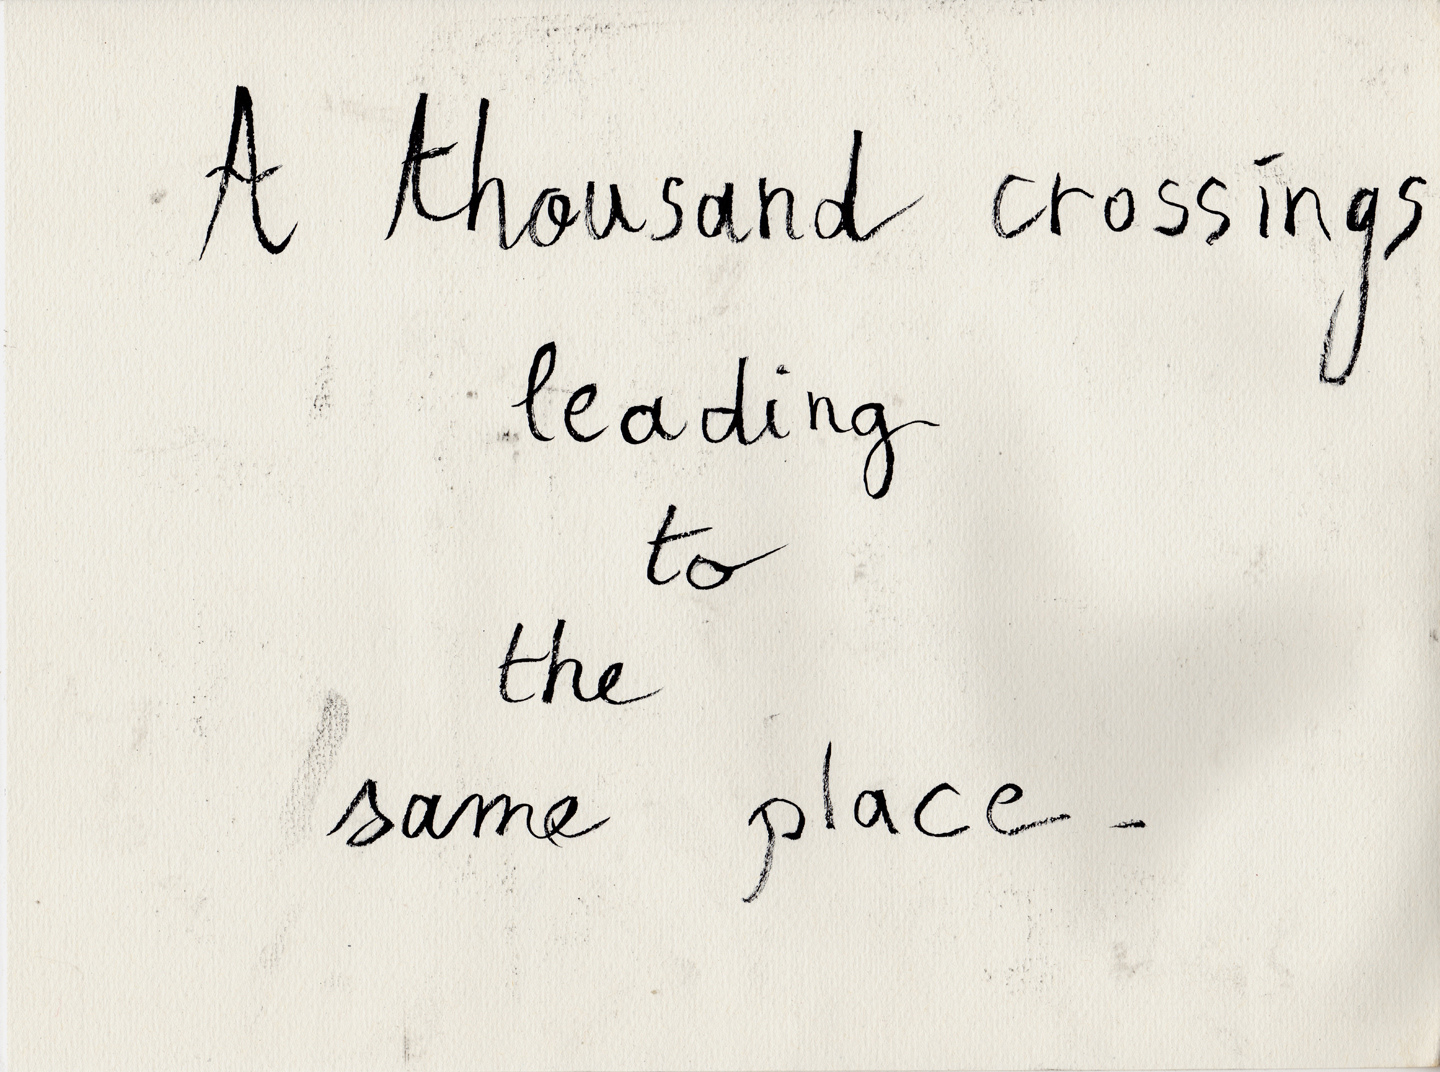 A thousand crossings
leading
to
the
same place -